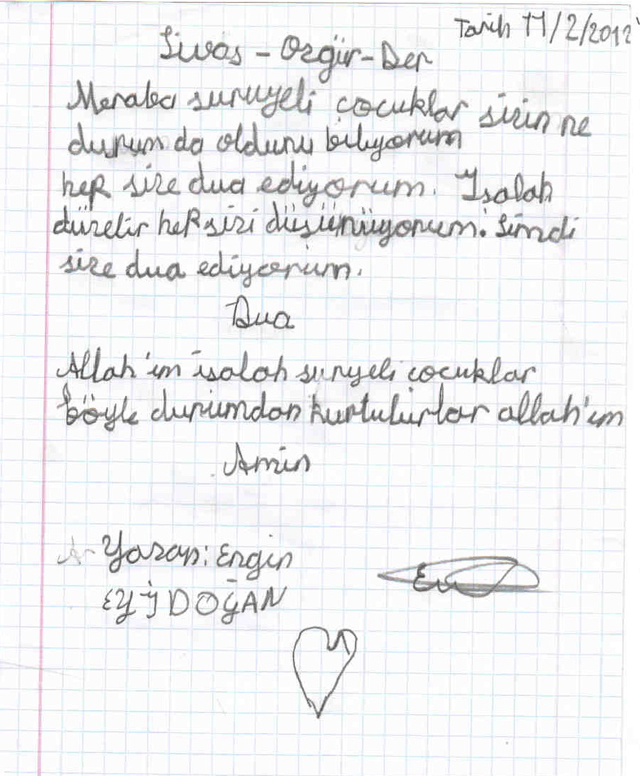 Tarih 11/2/2012
Sivas - Özgür-Der
Meraba suruyeli çocuklar sizin ne
durum da oldunu biliyorum
hep size dua ediyorum. İsalah
düzelir hep sizi düşünüyorum. Şimdi
size dua ediyorum.
Dua
Allah'ım isalah suryeli çocuklar
böyle durumdan kurtulurlar allah'ım
Amin
Yazan: Engin
EYİDOĞAN